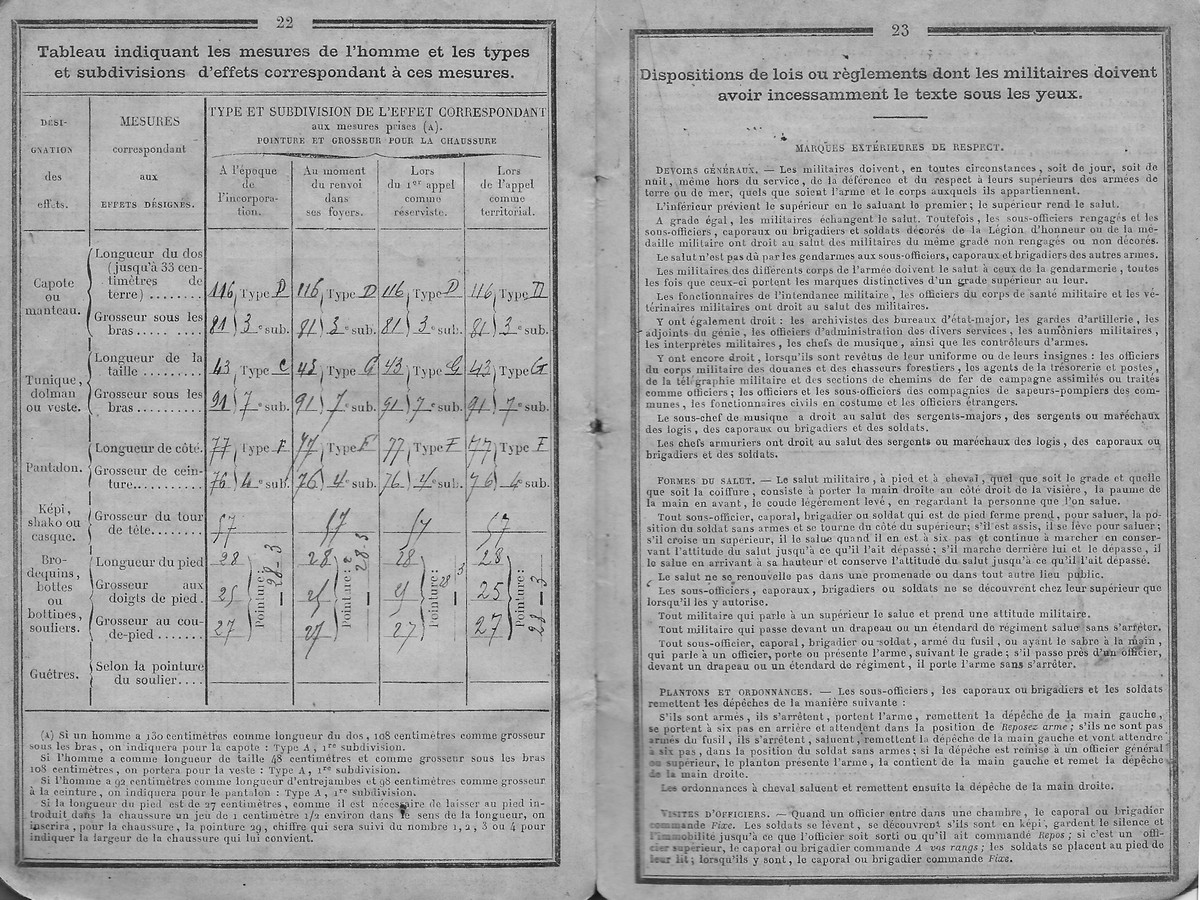 22
Tableau indiquant les mesures de l'homme et les types
et subdivisions d'effets correspondant à ces mesures.
DÉSI-
GNATION
des
effets.
MESURES
correspondant
aux
EFFETS DÉSIGNÉS.
TYPE ET SUBDIVISION DE L'EFFET CORRESPONDANT
aux mesures prises (A).
POINTURE ET GROSSEUR POUR LA CHAUSSURE
À l'époque
de
l'incorpora-
tion.
Au moment
du renvoi
dans
ses foyers.
Lors
du 1er appel
comme
réserviste.
Lors
de l'appel
comme
territorial.
Capote
ou
manteau.
Longueur du dos
(jusqu'à 33 cen-
timètres de
terre) ........
116 Type D 116 Type D 116 Type D 116 Type D
Grosseur sous les
bras..... .....
81 3e sub. 81 3e sub. 81 3e sub. 81 3e sub.
Tunique,
dolman
ou veste.
Longueur de la
taille .........
43 Type 43 Type G 43 Type G 43 Type G
Grosseur sous les
bras..........
91 7e sub. 91 7e sub. 91 7e sub. 91 7e sub.
Pantalon.
Longueur de côté.
77 Type F 77 Type F 77 Type F 77 Type F
Grosseur de cein-
ture..........
76 4e sub. 76 4e sub. 76 4e sub. 76 4e sub.
Képi,
shako ou
casque.
Grosseur du tour
de tête.........
57 57 57 57
Bro-
dequins,
bottes
ou
bottines,
souliers.
Longueur du pied
28 28 28 28
Grosseur aux
doigts de pied.
25 25 25 25
Grosseur au cou-
de-pied .......
27 27 27 27
Pointure: 28-3
Pointure: 28 3
Pointure: 28 3
Pointure: 28-3
Guêtres.
Selon la pointure
du soulier....
(A) Si un homme a 130 centimètres comme longueur du dos, 108 centimètres comme grosseur
sous les bras, on indiquera pour la capote : Type A, 1re subdivision.
Si l'homme a comme longueur de taille 48 centimètres et comme grosseur sous les bras
108 centimètres, on portera pour la veste : Type A, 1re subdivision.
Si l'homme a 92 centimètres comme longueur d'entrejambes et 98 centimètres comme grosseur
à la ceinture, on indiquera pour le pantalon : Type A, 1re subdivision.
Si la longueur du pied est de 27 centimètres, comme il est nécessaire de laisser au pied in-
troduit dans la chaussure un jeu de 1 centimètre 1/2 environ dans le sens de la longueur, on
inscrira, pour la chaussure, la pointure 29, chiffre qui sera suivi du nombre 1, 2, 3 ou 4 pour
indiquer la largeur de la chaussure qui lui convient.
23
Dispositions de lois ou règlements dont les militaires doivent
avoir incessamment le texte sous les yeux.
MARQUES EXTÉRIEURES DE RESPECT.
DEVOIRS GÉNÉRAUX. — Les militaires doivent, en toutes circonstances, soit de jour, soit de
nuit, même hors du service, de la déférence et du respect à leurs supérieurs des armées de
terre ou de mer, quels que soient l'arme et le corps auxquels ils appartiennent.
L'inférieur prévient le supérieur en le saluant le premier; le supérieur rend le salut.
A grade égal, les militaires échangent le salut. Toutefois, les sous-officiers rengagés et les
sous-officiers, caporaux ou brigadiers et soldats décorés de la Légion d'honneur ou de la mé-
daille militaire ont droit au salut des militaires du même grade non rengagés ou non décorés.
Le salut n'est pas dû par les gendarmes aux sous-officiers, caporaux et brigadiers des autres armes.
Les militaires des différents corps de l'armée doivent le salut à ceux de la gendarmerie, toutes
les fois que ceux-ci portent les marques distinctives d'un grade supérieur au leur.
Les fonctionnaires de l'intendance militaire, les officiers du corps de santé militaire et les vé-
térinaires militaires ont droit au salut des militaires.
Y ont également droit : les archivistes des bureaux d'état-major, les gardes d'artillerie, les
adjoints du génie, les officiers d'administration des divers services, les aumôniers militaires,
les interprètes militaires, les chefs de musique, ainsi que les contrôleurs d'armes.
Y ont encore droit, lorsqu'ils sont revêtus de leur uniforme ou de leurs insignes : les officiers
du corps militaire des douanes et des chasseurs forestiers, les agents de la trésorerie et postes,
de la télégraphie militaire et des sections de chemins de fer de campagne assimilés ou traités
comme officiers; les officiers et les sous-officiers des compagnies de sapeurs-pompiers des com-
munes, les fonctionnaires civils en costume et les officiers étrangers.
Le sous-chef de musique a droit au salut des sergents-majors, des sergents ou maréchaux
des logis, des caporaux ou brigadiers et des soldats.
Les chefs armuriers ont droit au salut des sergents ou maréchaux des logis, des caporaux ou
brigadiers et des soldats.
FORMES DU SALUT. — Le salut militaire, à pied et à cheval, quel que soit le grade et quelle
que soit la coiffure, consiste à porter la main droite au côté droit de la visière, la paume de
la main en avant, le coude légèrement levé, en regardant la personne que l'on salue.
Tout sous-officier, caporal, brigadier ou soldat qui est de pied ferme prend, pour saluer, la po-
sition du soldat sans armes et se tourne du côté du supérieur; s'il est assis, il se lève pour saluer;
s'il croise un supérieur, il le salue quand il en est à six pas et continue à marcher en conser-
vant l'attitude du salut jusqu'à ce qu'il l'ait dépassé; s'il marche derrière lui et le dépasse, il
le salue en arrivant à sa hauteur et conserve l'attitude du salut jusqu'à ce qu'il l'ait dépassé.
Le salut ne se renouvelle pas dans une promenade ou dans tout autre lieu public.
Les sous-officiers, caporaux, brigadiers ou soldats ne se découvrent chez leur supérieur que
lorsqu'il les y autorise.
Tout militaire qui parle à un supérieur le salue et prend une attitude militaire.
Tout militaire qui passe devant un drapeau ou un étendard de régiment salue sans s'arrêter.
Tout sous-officier, caporal, brigadier ou soldat, armé du fusil, ou ayant le sabre à la main,
qui parle à un officier, porte ou présente l'arme, suivant le grade; s'il passe près d'un officier,
devant un drapeau ou un étendard de régiment, il porte l'arme sans s'arrêter.
PLANTONS ET ORDONNANCES. — Les sous-officiers, les caporaux ou brigadiers et les soldats
remettent les dépêches de la manière suivante :
S'ils sont armés, ils s'arrêtent, portent l'arme, remettent la dépêche de la main gauche,
se portent à six pas en arrière et attendent dans la position de Reposez arme; s'ils ne sont pas
armés du fusil, ils s'arrêtent, saluent, remettent la dépêche de la main gauche et vont attendre
à six pas, dans la position du soldat sans armes; si la dépêche est remise à un officier général
ou supérieur, le planton présente l'arme, la contient de la main gauche et remet la dépêche
de la main droite.
Les ordonnances à cheval saluent et remettent ensuite la dépêche de la main droite.
VISITES D'OFFICIERS. — Quand un officier entre dans une chambre, le caporal ou brigadier
commande Fixe. Les soldats se lèvent, se découvrent s'ils sont en képi, gardent le silence et
l'immobilité jusqu'à ce que l'officier soit sorti ou qu'il ait commandé Repos; si c'est un offi-
cier supérieur, le caporal ou brigadier commande A vos rangs; les soldats se placent au pied de
leur lit; lorsqu'ils y sont, le caporal ou brigadier commande Fixe.